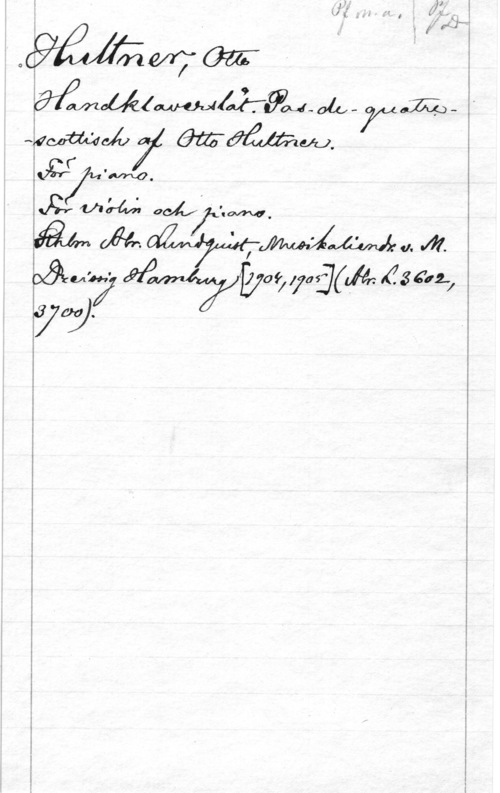 Pf m. a. Pf D
Hultner, Otto
Handklaverslåt. Pas-de-quatre-
-scottisch af Otto Hultner.
För piano.
För violin och piano.
Sthlm Abr. Lundquist, Musikaliendr. v. M.
Dreissig Hamburg [1904, 1905] (Abr. L. 3602,
3700).